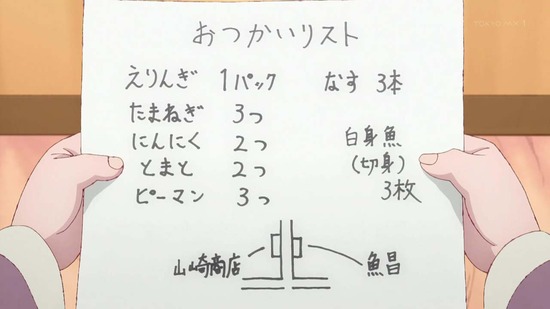 おつかいリスト
えりんぎ 1パック
たまねぎ 3つ
にんにく 2つ
とまと 2つ
ピーマン 3つ
なす 3本
白身魚
(切身)
3枚
山崎商店
魚昌